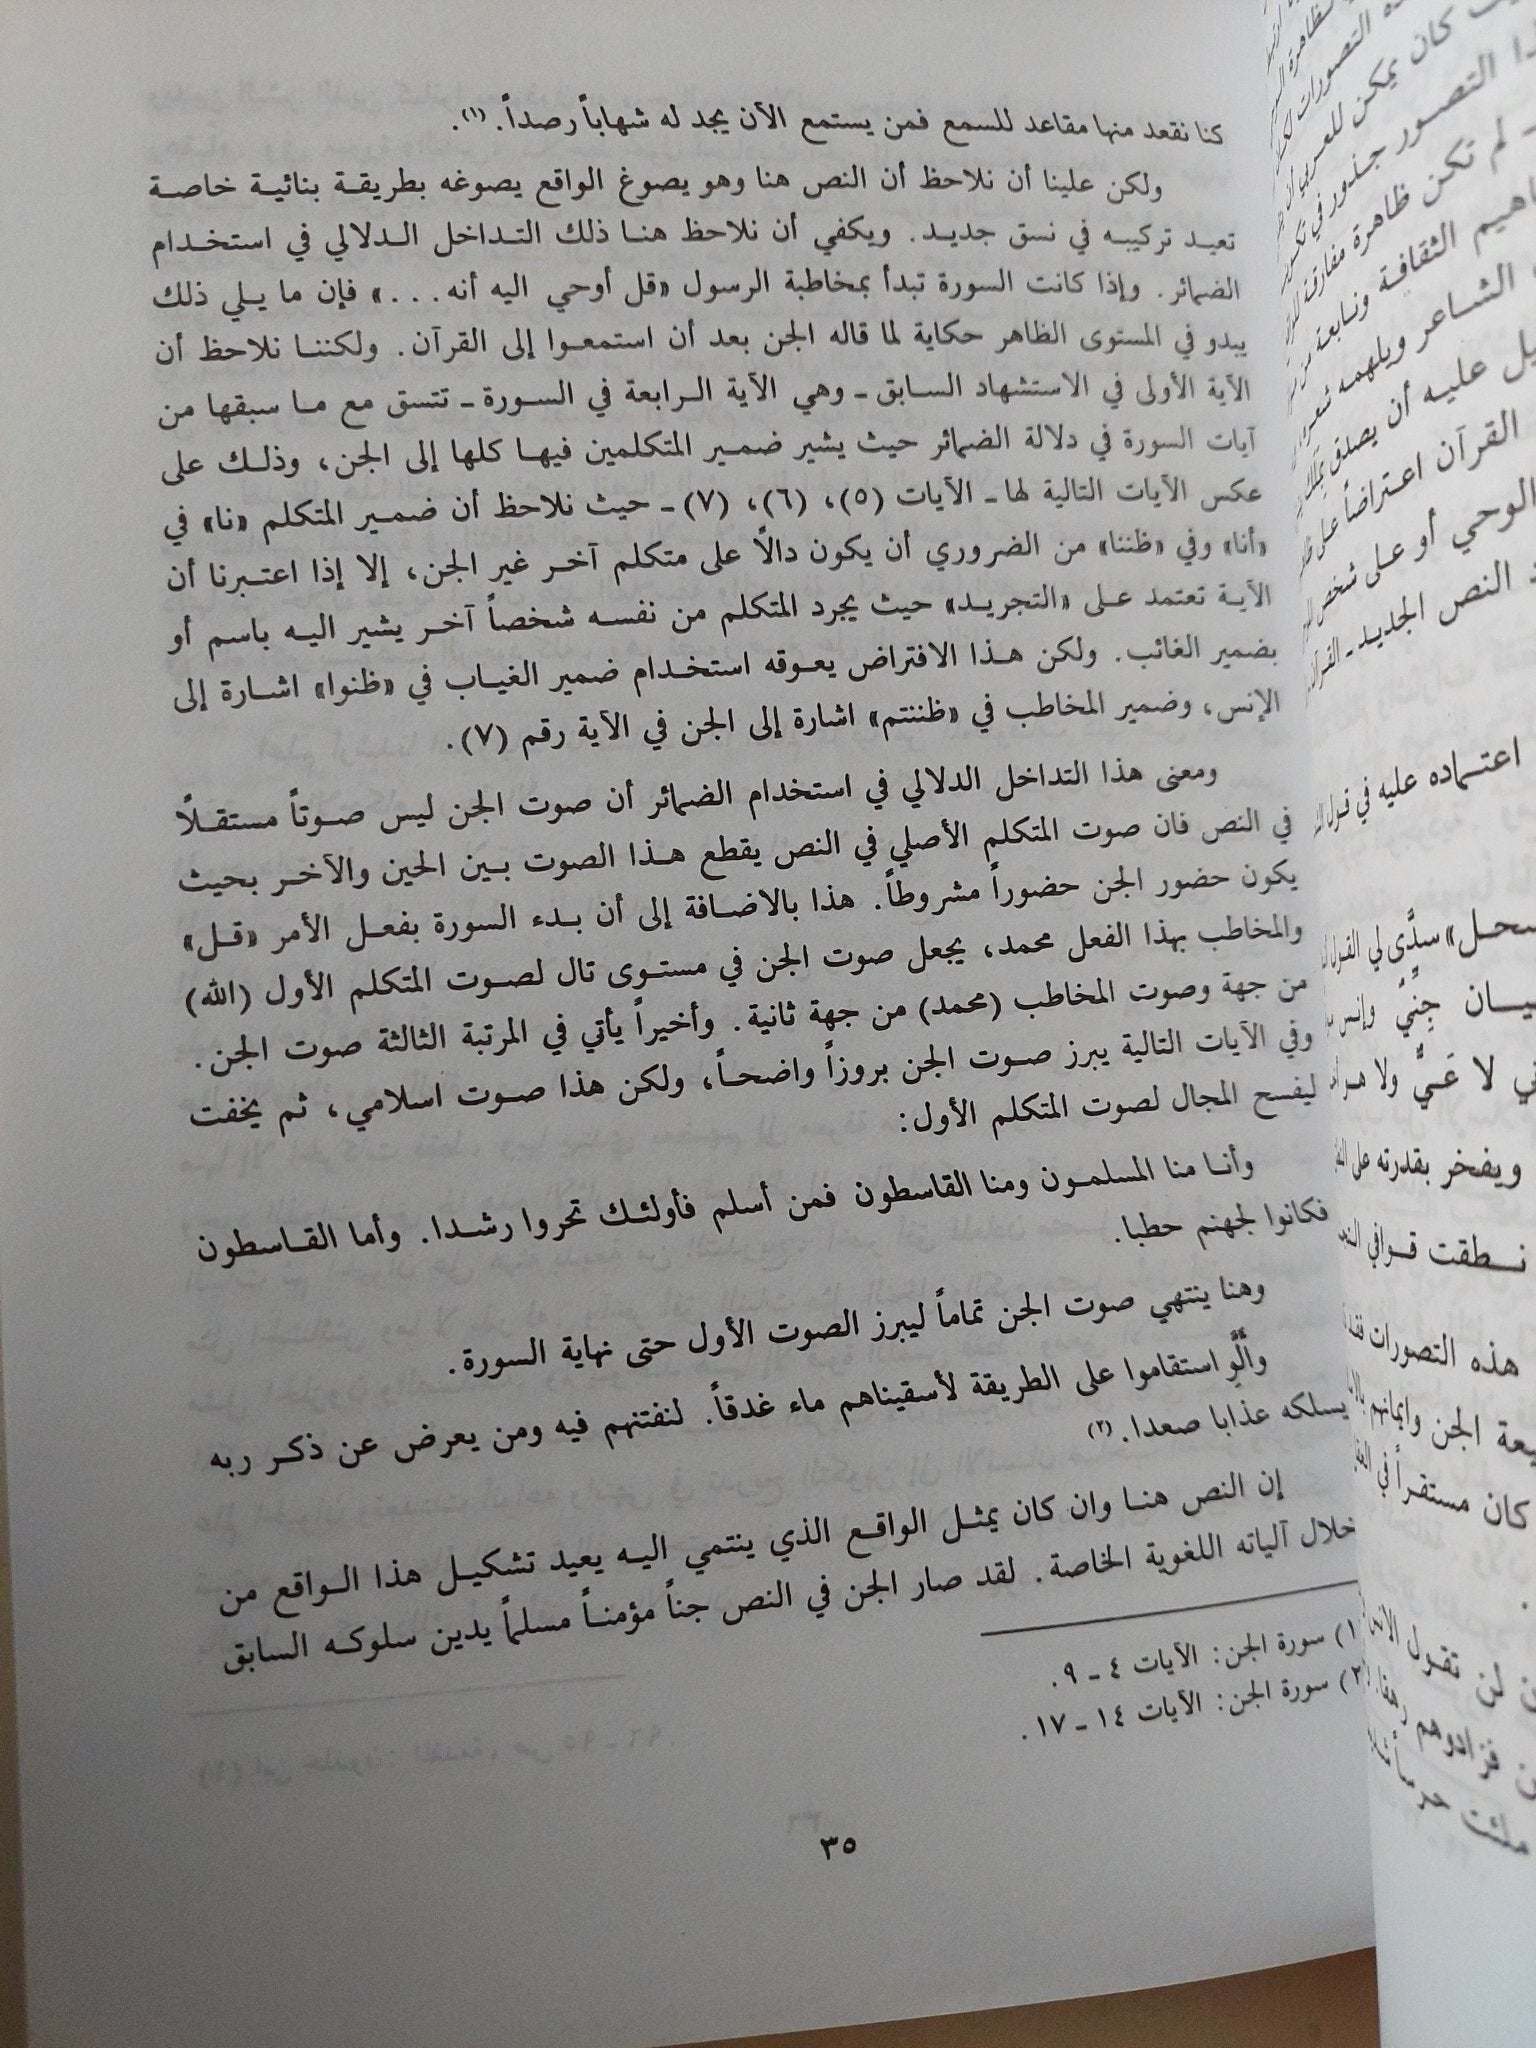 كنا نقعد منها مقاعد للسمع فمن يستمع الآن يجد له شهاباً رصداً. (١).
ولكن علينا أن نلاحظ أن النص هنا وهو يصوغ الواقع يصوغه بطريقة بنائية خاصة
تعيد تركيبه في نسق جديد. ويكفي أن نلاحظ هنا ذلك التداخل الدلالي في استخدام
الضمائر. وإذا كانت السورة تبدأ بمخاطبة الرسول «قل أوحي اليه أنه...» فإن ما يلي ذلك
يبدو في المستوى الظاهر حكاية لما قاله الجن بعد أن استمعوا إلى القرآن. ولكننا نلاحظ أن
الآية الأولى في الاستشهاد السابق ـ وهي الآية الرابعة في السورة ـ تتسق مع ما سبقها من
آيات السورة في دلالة الضمائر حيث يشير ضمير المتكلمين فيها كلها إلى الجن، وذلك على
عكس الآيات التالية لها ـ الآيات (٥)، (٦)، (٧) ـ حيث نلاحظ أن ضمير المتكلم «نا» في
«أنا» وفي «ظننا» من الضروري أن يكون دالًا على متكلم آخر غير الجن، إلا إذا اعتبرنا أن
الآية تعتمد على «التجريد» حيث يجرد المتكلم من نفسه شخصاً آخر يشير اليه باسم أو
بضمير الغائب. ولكن هذا الافتراض يعوقه استخدام ضمير الغياب في «ظنوا» اشارة إلى
الإنس، وضمير المخاطب في «ظننتم» اشارة إلى الجن في الآية رقم (٧).
ومعنى هذا التداخل الدلالي في استخدام الضمائر أن صوت الجن ليس صوتاً مستقلًا
في النص فان صوت المتكلم الأصلي في النص يقطع هذا الصوت بين الحين والآخر بحيث
يكون حضور الجن حضوراً مشروطاً. هذا بالاضافة إلى أن بدء السورة بفعل الأمر «قل»
والمخاطب بهذا الفعل محمد، يجعل صوت الجن في مستوى تال لصوت المتكلم الأول (الله)
من جهة وصوت المخاطب (محمد) من جهة ثانية. وأخيراً يأتي في المرتبة الثالثة صوت الجن.
وفي الآيات التالية يبرز صوت الجن بروزاً واضحاً، ولكن هذا صوت اسلامي، ثم يخفت
ليفسح المجال لصوت المتكلم الأول:
وأنا منا المسلمون ومنا القاسطون فمن أسلم فأولئك تحروا رشدا. وأما القاسطون
فكانوا لجهنم حطبا.
وهنا ينتهي صوت الجن تماماً ليبرز الصوت الأول حتى نهاية السورة.
وألَّوِ استقاموا على الطريقة لأسقيناهم ماء غدقاً. لنفتنهم فيه ومن يعرض عن ذكر ربه
يسلكه عذابا صعدا. (٢)
إن النص هنا وان كان يمثل الواقع الذي ينتمي اليه يعيد تشكيل هذا الواقع من
خلال آلياته اللغوية الخاصة. لقد صار الجن في النص جناً مؤمناً مسلماً يدين سلوكه السابق
١) سورة الجن: الآيات ٤ ـ ٩.
٢) سورة الجن: الآيات ١٤ ـ ١٧.
٣٥